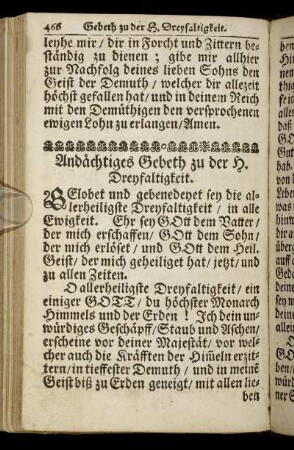 466 Gebeth zu der H. Dreyfaltigkeit.
leyhe mir / dir in Forcht und Zittern be-
ständig zu dienen; gibe mir allhier
zur Nachfolg deines lieben Sohns den
Geist der Demuth / welcher dir allezeit
höchst gefallen hat / und in deinem Reich
mit den Demüthigen den versprochenen
ewigen Lohn zu erlangen / Amen.
Andächtiges Gebeth zu der H.
Dreyfaltigkeit.
GElobet und gebenedeyet sey die al-
lerheiligste Dreyfaltigkeit / in alle
Ewigkeit. Ehr sey GOtt dem Vatter /
der mich erschaffen / GOtt dem Sohn /
der mich erlöset / und GOtt dem Heil.
Geist / der mich geheiliget hat / jetzt / und
zu allen Zeiten.
O allerheiligste Dreyfaltigkeit / ein
einiger GOTT / du höchster Monarch
Himmels und der Erden! Ich dein un-
würdiges Geschäpff / Staub und Aschen /
erscheine vor deiner Majestät / vor wel-
cher auch die Kräfften der Him̃eln erzit-
tern / in tieffester Demuth / und in meinẽ
Geist biß zu Erden geneigt / mit allen lie-
ben